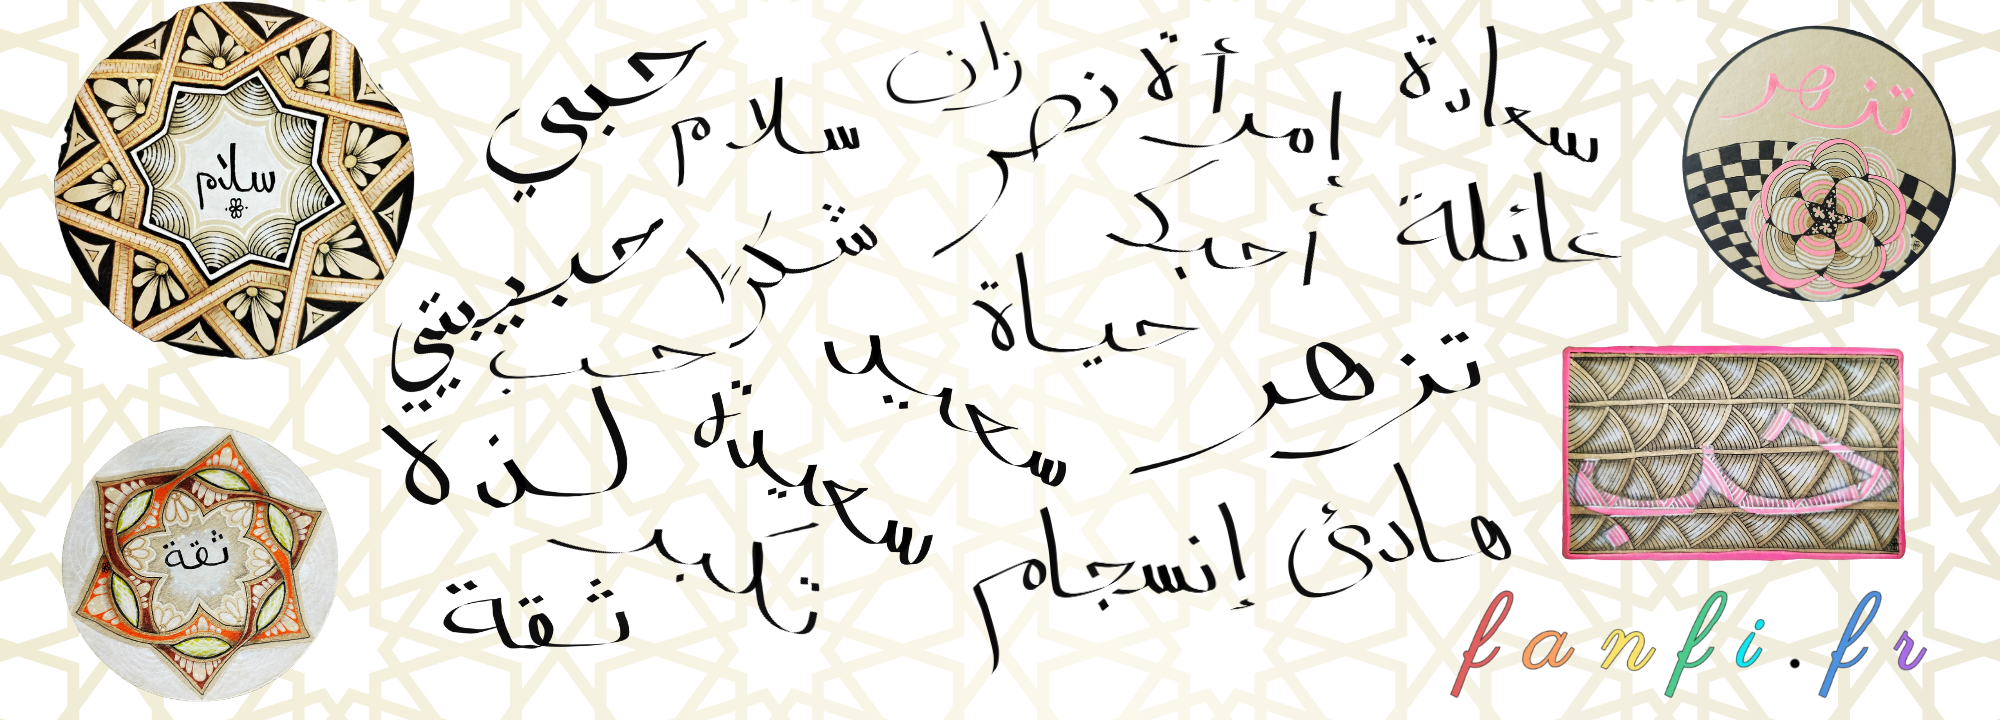 سعادة
إمرأة
نصر
زان
سلام
حبي
عائلة
أحبك
حياة
شكرًا
حبيبتي
حب
تزهر
سعيد
سعيدة
لذة
هادئ
إنسجام
ثقة
سلام
ثقة
تزهر
حب
fanfi.fr